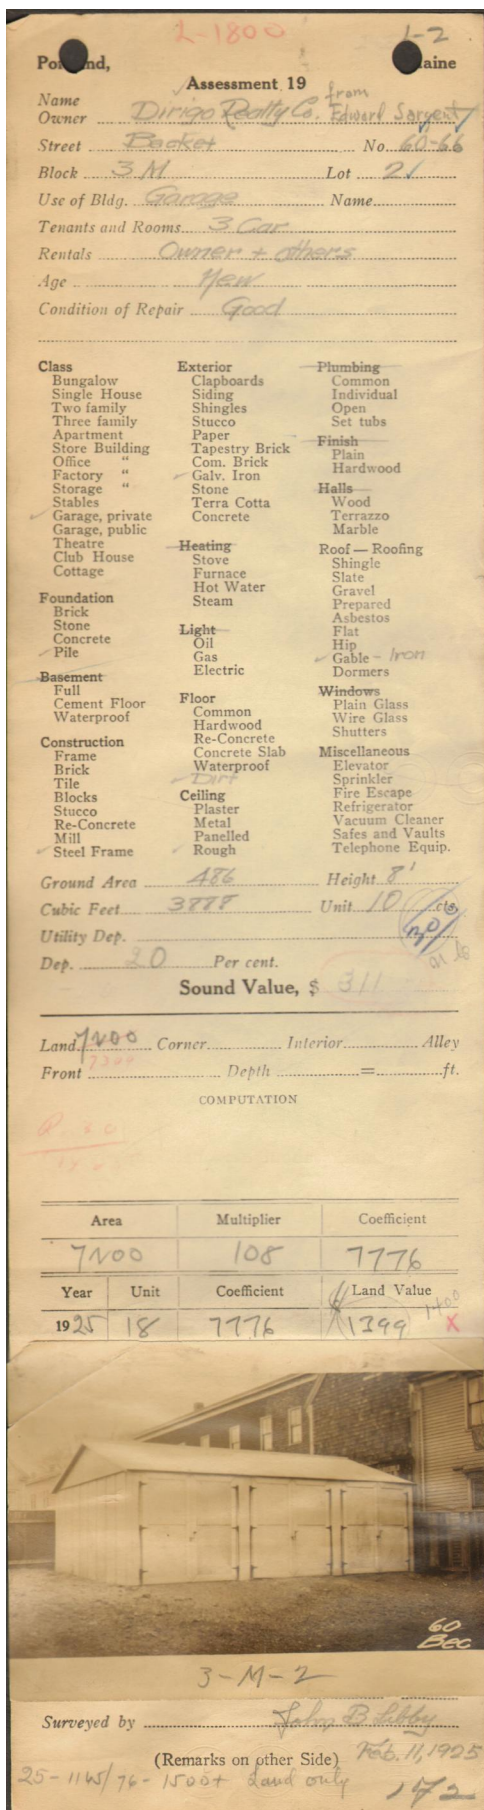 L-1800 1-2
Portland, Maine
Assessment 19
Name
Owner Dirigo Realty Co. from Edward Sargent
Street Becket No. 60-66
Block 3 M Lot 2
Use of Bldg. Garage Name
Tenants and Rooms 3 Car
Rentals Owner + others
Age New
Condition of Repair Good
Class
Bungalow
Single House
Two family
Three family
Apartment
Store Building
Office "
Factory "
Storage "
Stables
Garage, private
Garage, public
Theatre
Club House
Cottage
Foundation
Brick
Stone
Concrete
Pile
Basement
Full
Cement Floor
Waterproof
Construction
Frame
Brick
Tile
Blocks
Stucco
Re-Concrete
Mill
Steel Frame
Exterior
Clapboards
Siding
Shingles
Stucco
Paper
Tapestry Brick
Com. Brick
Galv. Iron
Stone
Terra Cotta
Concrete
Heating
Stove
Furnace
Hot Water
Steam
Light
Oil
Gas
Electric
Floor
Common
Hardwood
Re-Concrete
Concrete Slab
Waterproof
Dirt
Ceiling
Plaster
Metal
Panelled
Rough
Plumbing
Common
Individual
Open
Set tubs
Finish
Plain
Hardwood
Halls
Wood
Terrazzo
Marble
Roof — Roofing
Shingle
Slate
Gravel
Prepared
Asbestos
Flat
Hip
Gable - Iron
Dormers
Windows
Plain Glass
Wire Glass
Shutters
Miscellaneous
Elevator
Sprinkler
Fire Escape
Refrigerator
Vacuum Cleaner
Safes and Vaults
Telephone Equip.
Ground Area 486 Height 8'
Cubic Feet 3888 Unit 10 cts.
Utility Dep.
Dep. 20 Per cent.
Sound Value, $ 311
Land 7200 Corner Interior Alley
Front Depth = ft.
COMPUTATION
Area Multiplier Coefficient
7200 108 7776
Year Unit Coefficient Land Value
1925 18 7776 $1399 1400 X
60
Bec
3-M-2
Surveyed by John B Libby
(Remarks on other Side) Feb. 11, 1925
Land only
172